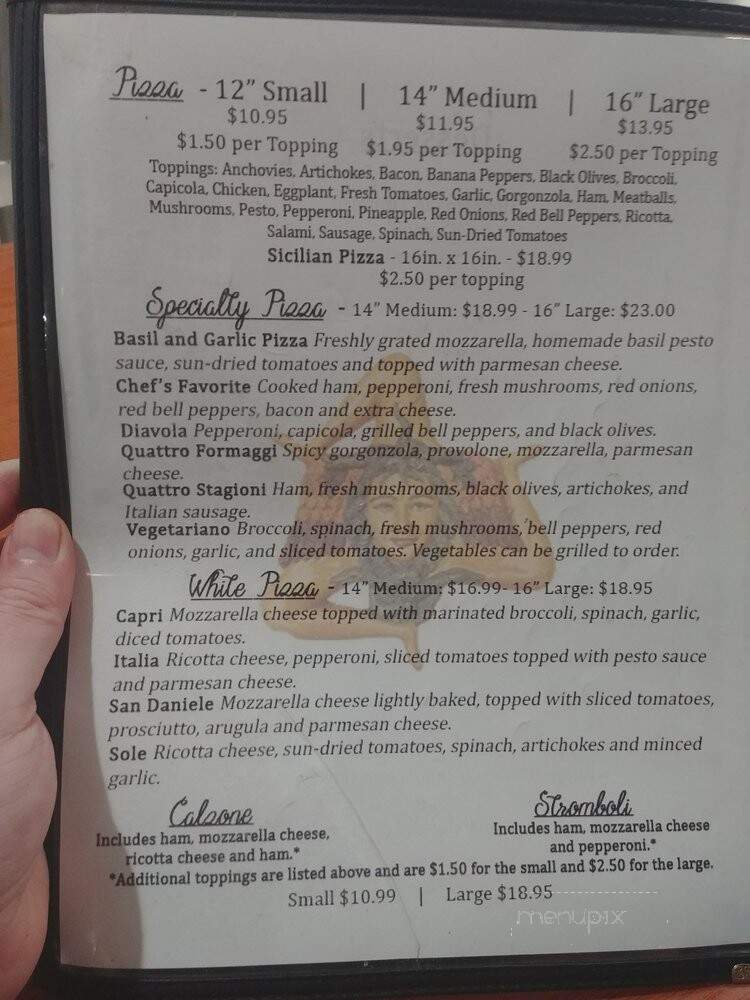 Pizza - 12" Small | 14" Medium | 16" Large
$10.95 $11.95 $13.95
$1.50 per Topping $1.95 per Topping $2.50 per Topping
Toppings: Anchovies, Artichokes, Bacon, Banana Peppers, Black Olives, Broccoli,
Capicola, Chicken, Eggplant, Fresh Tomatoes, Garlic, Gorgonzola, Ham, Meatballs,
Mushrooms, Pesto, Pepperoni, Pineapple, Red Onions, Red Bell Peppers, Ricotta,
Salami, Sausage, Spinach, Sun-Dried Tomatoes
Sicilian Pizza - 16in. x 16in. - $18.99
$2.50 per topping
Specialty Pizza - 14" Medium: $18.99 - 16" Large: $23.00
Basil and Garlic Pizza Freshly grated mozzarella, homemade basil pesto
sauce, sun-dried tomatoes and topped with parmesan cheese.
Chef's Favorite Cooked ham, pepperoni, fresh mushrooms, red onions,
red bell peppers, bacon and extra cheese.
Diavola Pepperoni, capicola, grilled bell peppers, and black olives.
Quattro Formaggi Spicy gorgonzola, provolone, mozzarella, parmesan
cheese.
Quattro Stagioni Ham, fresh mushrooms, black olives, artichokes, and
Italian sausage.
Vegetariano Broccoli, spinach, fresh mushrooms, bell peppers, red
onions, garlic, and sliced tomatoes. Vegetables can be grilled to order.
White Pizza - 14" Medium: $16.99- 16" Large: $18.95
Capri Mozzarella cheese topped with marinated broccoli, spinach, garlic,
diced tomatoes.
Italia Ricotta cheese, pepperoni, sliced tomatoes topped with pesto sauce
and parmesan cheese.
San Daniele Mozzarella cheese lightly baked, topped with sliced tomatoes,
prosciutto, arugula and parmesan cheese.
Sole Ricotta cheese, sun-dried tomatoes, spinach, artichokes and minced
garlic.
Calzone Stromboli
Includes ham, mozzarella cheese, Includes ham, mozzarella cheese
ricotta cheese and ham.* and pepperoni.*
*Additional toppings are listed above and are $1.50 for the small and $2.50 for the large.
Small $10.99 | Large $18.95
menupix